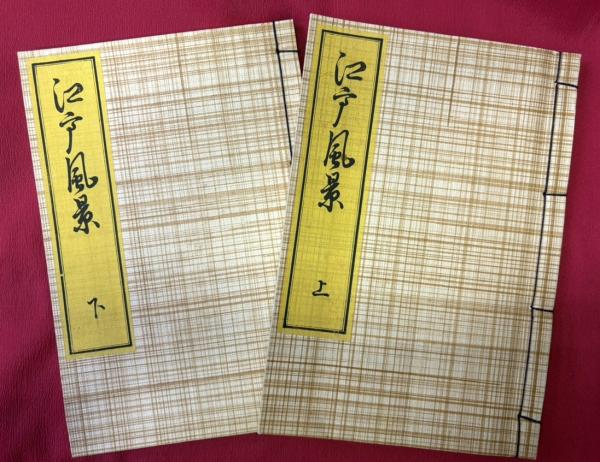 江戸風景
下
江戸風景
上